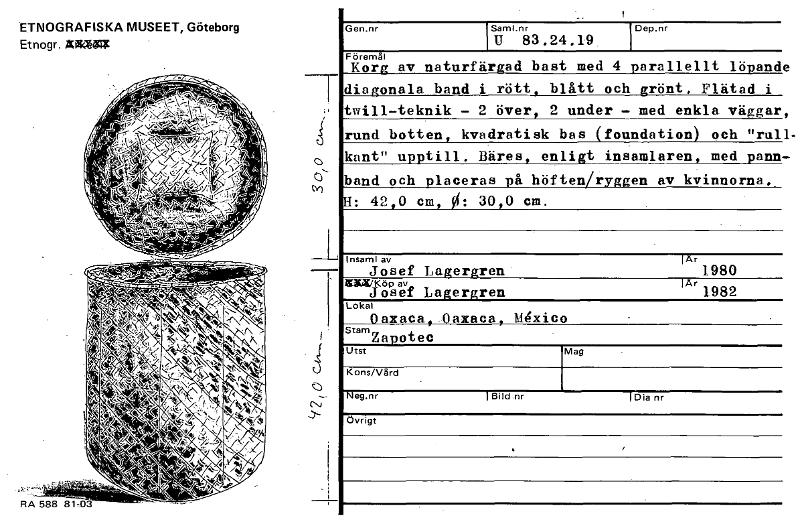 ETNOGRAFISKA MUSEET, Göteborg
Etnogr.
30,0 cm
42,0 cm
RA 588 81-03
Gen.nr
Saml.nr
U 83.24.19
Dep.nr
Föremål
Korg av naturfärgad bast med 4 parallellt löpande
diagonala band i rött, blått och grönt. Flätad i
twill-teknik - 2 över, 2 under - med enkla väggar,
rund botten, kvadratisk bas (foundation) och "rull-
kant" upptill. Bäres, enligt insamlaren, med pann-
band och placeras på höften/ryggen av kvinnorna.
H: 42,0 cm, Ø: 30,0 cm.
Insaml av
Josef Lagergren
År
1980
/Köp av
Josef Lagergren
År
1982
Lokal
Oaxaca, Oaxaca, México
Stam
Zapotec
Utst
Mag
Kons/Vård
Neg.nr
Bild nr
Dia nr
Övrigt